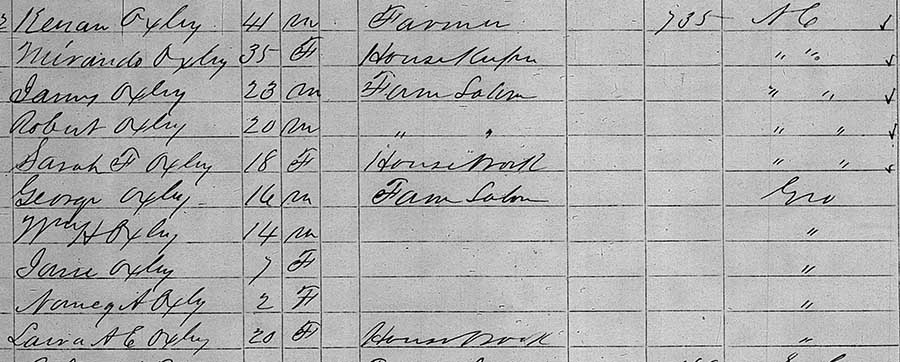 Kenan Oxley 41 m Farmer 735 N C ✓
Mirando Oxley 35 F House Keeper " " ✓
James Oxley 23 m Farm Labor " " ✓
Robert Oxley 20 m " " " " ✓
Sarah F Oxley 18 F House Work " " ✓
George Oxley 16 m Farm Labor Geo
Wm H Oxley 14 m "
Jane Oxley 7 F "
Nancy A Oxley 2 F "
Laura A E Oxley 20 F House Work "